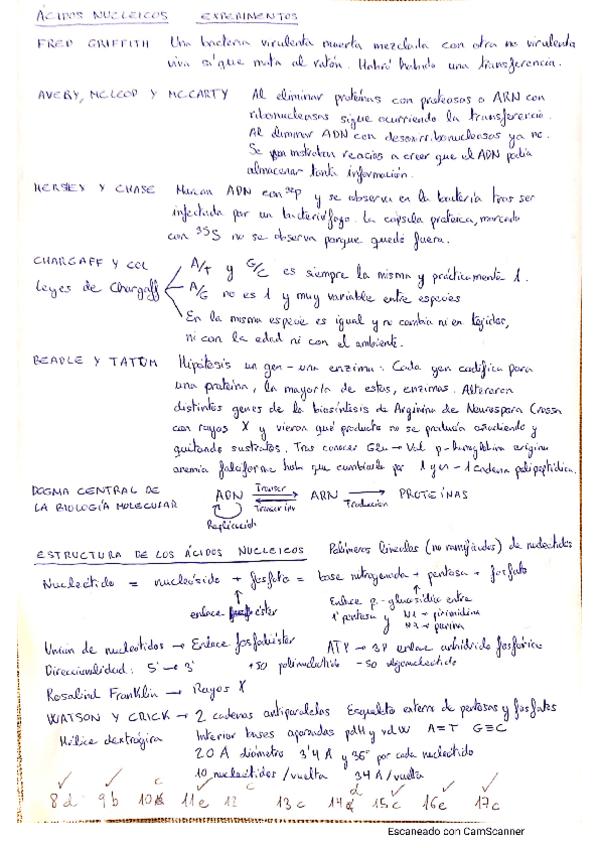 ÁCIDOS NUCLEICOS EXPERIMENTOS
FRED GRIFFITH Una bacteria virulenta muerta mezclada con otra no virulenta
viva sigue mata al ratón. Habrá habido una transferencia.
AVERY, MCLEOD Y MCCARTY Al eliminar proteínas con proteasas o ARN con
ribonucleasas sigue ocurriendo la transferencia.
Al eliminar ADN con desoxirribonucleasas ya no.
Se mostraban reacios a creer que el ADN podía
almacenar tanta información.
HERSEY Y CHASE Marcan ADN con ³²P y se observa en la bacteria tras ser
infectada por un bacteriófago. La cápsula proteica, marcada
con ³⁵S no se observa porque quedó fuera.
CHARGAFF Y COL A/T y G/C es siempre la misma y prácticamente 1.
Leyes de Chargaff A/G no es 1 y muy variable entre especies
En la misma especie es igual y no cambia ni en tejidos,
ni con la edad ni con el ambiente.
BEADLE Y TATUM Hipótesis un gen - una enzima: Cada gen codifica para
una proteína, la mayoría de estas, enzimas. Alteraron
distintos genes de la biosíntesis de Arginina de Neurospora Crassa
con rayos X y vieron qué producto no se producía añadiendo y
quitando sustratos. Tras conocer Glu → Val β-hemoglobina origina
anemia falciforme hubo que cambiarlo por 1 gen - 1 cadena polipeptídica.
DOGMA CENTRAL DE LA BIOLOGÍA MOLECULAR ADN Transcr Transcr inv ARN Traducción PROTEÍNAS
Replicación
ESTRUCTURA DE LOS ÁCIDOS NUCLEICOS Polímeros lineales (no ramificados) de nucleótidos
Nucleótido = nucleósido + fosfato = base nitrogenada + pentosa + fosfato
enlace éster Enlace β-glucosídico entre
1' pentosa y N1 → pirimidina
N9 → purina
Unión de nucleótidos → Enlace fosfodiéster ATP → 3P enlace anhídrido fosfórico
Direccionalidad: 5' → 3' +50 polinucleótido -50 oligonucleótido
Rosalind Franklin → Rayos X
WATSON Y CRICK → 2 cadenas antiparalelas Esqueleto externo de pentosas y fosfatos
Hélice dextrógira Interior bases apareadas pdH y vdW A=T G≡C
20 A diámetro 3'4 A y 36° por cada nucleótido
10 nucleótidos/vuelta 34 A/vuelta
8d 9b 10c 11e 12c 13c 14d 15c 16e 17c
Escaneado con CamScanner